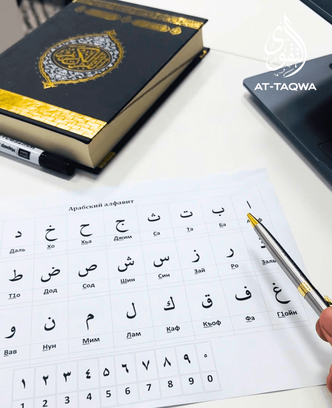 AT-TAQWA
Арабский алфавит
ا ب ت ث ج ح خ د
Ба Та Са Джим Хьа Хо Даль
ر ز س ش ص ض ط
Заль Ро Зай Син Шин Сод Дод Т1о
غ ف ق ك ل م ن و
Г1ойн Фа Къоф Каф Лам Мим Нун Вав
١ ٢ ٣ ٤ ٥ ٦ ٧ ٨ ٩ ٠
1 2 3 4 5 6 7 8 9 0